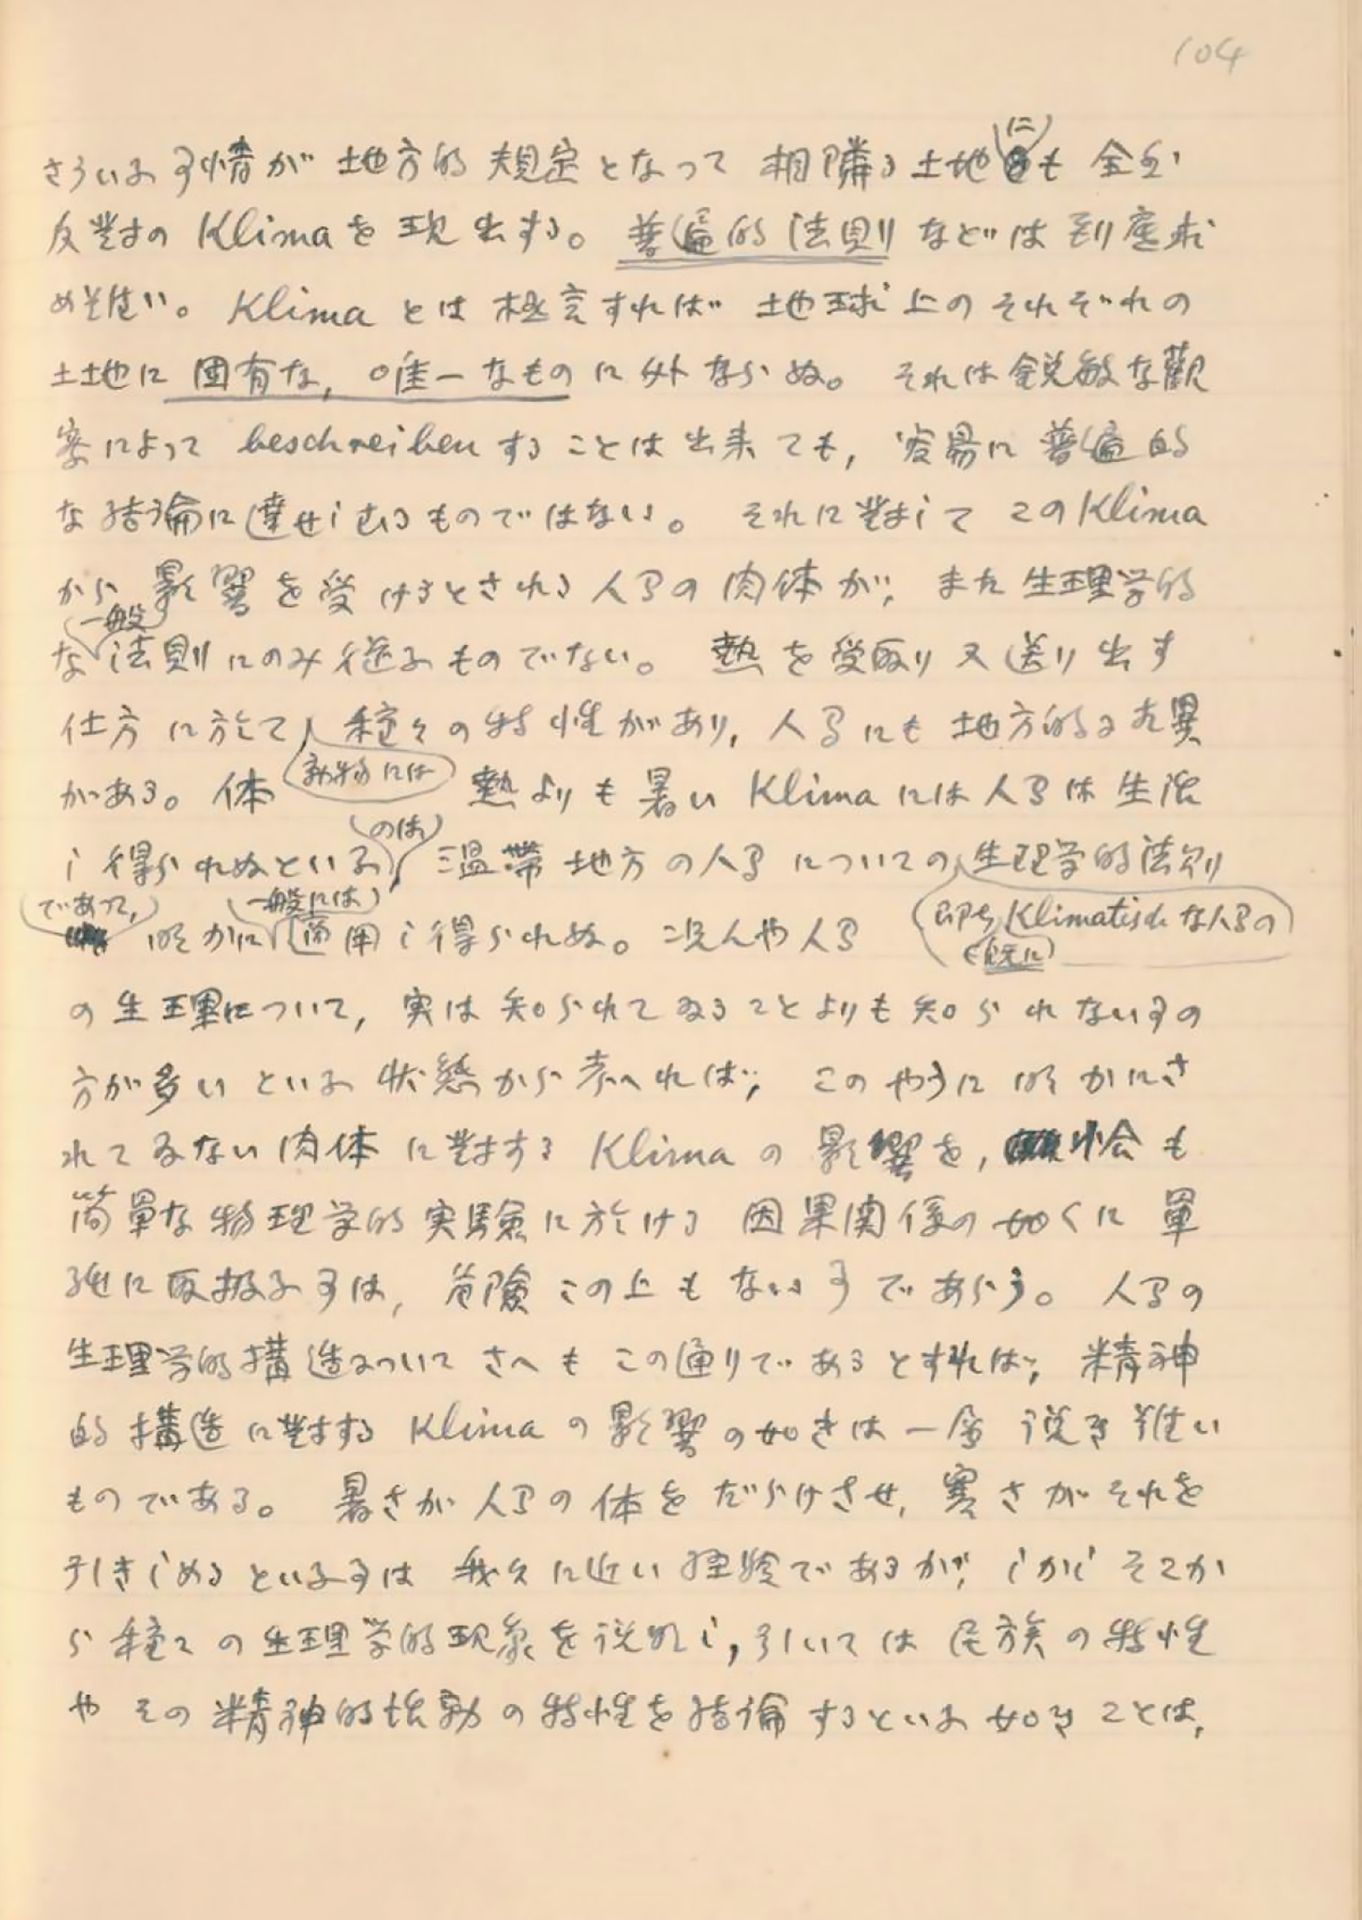 104
さういふ事情が地方的規定となって相隣る土地にも全然
反對の Klima を現出する。普遍的法則などは到底求
め難い。Klima とは極言すれば地球上のそれぞれの
土地に固有な,唯一なものに外ならぬ。それは鋭敏な觀
察によって beschreiben することは出来ても,容易に普遍的
な結論に達せしむるものではない。それに對して この Klima
から影響を受けるとされる人間の肉体が,また生理学的
一般
な法則にのみ從ふものでない。熱を受取り又送り出す
仕方に於て 種々の特性があり,人間にも地方的な差異
動物には
がある。体熱よりも暑い Klima には人間は生活
のは
し得られぬといふ 温帯地方の人間についての生理学的法則
であって, 一般には 即ち Klimatisch な人間の
明かに適用し得られぬ。况んや人間
(既に)
の生理について,実は知られてゐることよりも知られない事の
方が多いといふ状態から考へれば,このやうに明かにさ
れてゐない肉体に對する Klima の影響を,恰も
簡單な物理学的実驗に於ける因果関係の如くに單
純に取扱ふ事は,危險この上もない事であらう。人間の
生理学的構造についてさへもこの通りであるとすれば,精神
的構造に對する Klima の影響の如きは一層説き難い
ものである。暑さが人間の体をだらけさせ,寒さがそれを
引きしめるといふ事は我々に近い経験であるが,しかしそこか
ら種々の生理学的現象を説明し,引いては民族の特性
やその精神的活動の特性を結論するといふ如きことは,